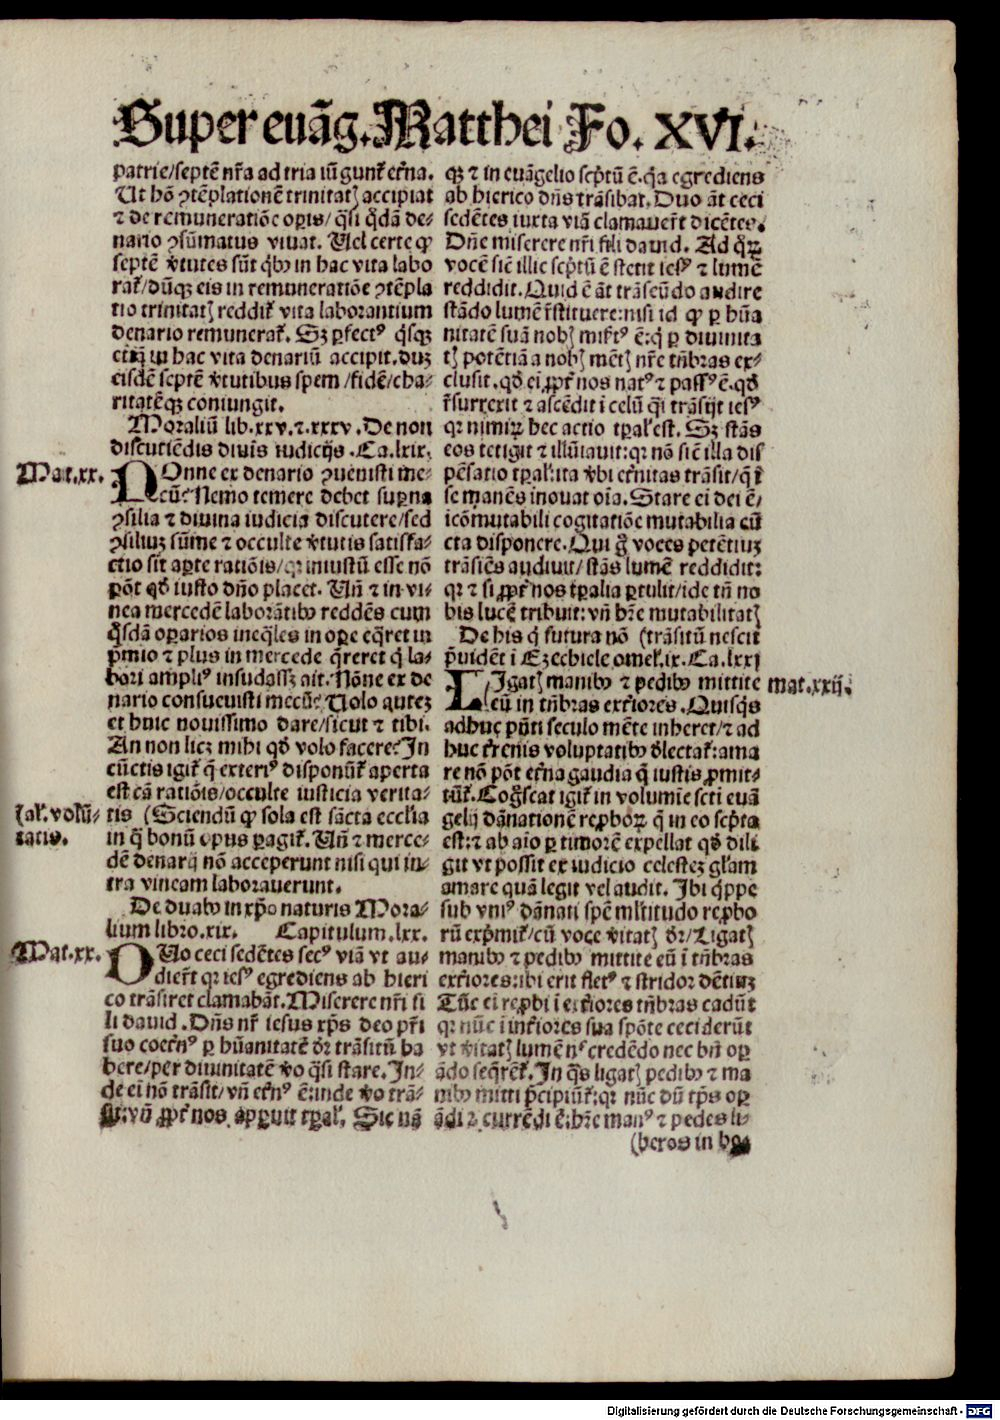 Super euāg. Matthei Fo. XVI.
patrie/septē nr̄a ad tria iū gunt̄ et̄na.
Ut hō ꝯtēplationē trinitatꝭ accipiat
⁊ de remuneratiōe oꝑis/ q̄si q̄dā de-
nario ꝯsūmatus viuat. Uel certe ꝙ
septē v̄tutes sūt qͥbꝰ in hac vita labo
rat̄/ dūqꝫ eis in remuneratiōe ꝯtēpla
tio trinitatꝭ reddit̄ vita laborantium
denario remunerat̄. Sꝫ ꝑfectꝰ qͥsqꝫ
etiā in hac vita denariū accipit. duꝫ
eisdē septē v̄tutibus spem/fidē/cha-
ritatēqꝫ coniungit.
Moraliū lib.xxv.⁊.xxxv. De non
discutiēdis diuīs iudicijs. Ca.lxix.
Mat.xx.
NOnne ex denario ꝯuenisti me-
cū? Nemo temere debet suꝑna
ꝯsilia ⁊ diuina iudicia discutere/sed
ꝯsiliuꝫ sūme ⁊ occulte v̄tutis satisfa-
ctio sit aꝑte ratiōis/ qꝛ iniustū esse nō
pōt qd̄ iusto dn̄o placet. Un̄ ⁊ in vi-
nea mercedē laborātibꝰ reddēs cum
q̄sdā oꝑarios ineq̄les in oꝑe eq̄ret in
p̄mio ⁊ plus in mercede q̄reret qͥ la-
bori ampliꝰ insudassꝫ ait. Nōne ex de
nario conuenisti mecū? Uolo auteꝫ
et huic nouissimo dare/sicut ⁊ tibi.
An non licꝫ mihi qd̄ volo facere? In
cūctis igit̄ q̄ exteriꝰ disponūt̄ aperta
est cā ratiōis/occulte iusticia verita-
tis (Sciendū ꝙ sola est sācta ecclia
in q̄ bonū opus ꝑagit̄. Un̄ ⁊ merce-
dē denarij nō acceperunt nisi qui in-
tra vineam laborauerunt.
De duabꝰ in xp̄o naturis Mora-
lium libro.xix. Capitulum.lxx.
Mat.xx.
DUo ceci sedētes secꝰ viā vt au-
dier̄t qꝛ iesꝰ egrediens ab hieri
co trāsiret clamabāt. Miserere nr̄i fi
li dauid. Dn̄s nr̄ iesus xp̄s deo pr̄i
suo coet̄nꝰ ꝑ hūanitatē dr̄ trāsitū ha
bere/per diuinitatē v̄o q̄si stare. In-
de ei nō trāsit/ vn̄ et̄nꝰ ē:inde v̄o trā-
sit:vn̄ ꝓpt̄ nos apparuit tꝑal̄. Sic nā
qꝫ ⁊ in euāgelio sc̄ptū ē. qͣa egrediens
ab hierico dn̄s trāsibat. Duo āt ceci
sedētes iuxta viā clamauer̄t dicētes.
Dn̄e miserere nr̄i fili dauid. Ad qͦꝝ
vocē sic illic sc̄ptū ē stetit iesꝰ ⁊ lumē
reddidit. Quid ē āt trāseūdo audire
stādo lumē r̄stituere:nisi id ꝙ ꝑ hūa
nitatē suā nobꝭ mis̄tꝰ ē:qͥ ꝑ diuinita
tꝭ potētiā a nobꝭ mētꝭ nr̄e tn̄bras ex-
clusit. qd̄ ei ꝓpt̄ nos natꝰ ⁊ passꝰ ē. qd̄
r̄surrexit ⁊ ascēdit i celū qͣi trāsijt iesꝰ
qꝛ nimiꝝ hec actio tꝑal̄ est. Sꝫ stās
eos tetigit ⁊ illūiauit:qꝛ nō sic illa dis
pēsatio tꝑal̄:ita v̄bi et̄nitas trāsit/qͥ ī
se manēs inouat oīa. Stare ei dei ē/
icōmutabili cogitatiōe mutabilia cū
cta disponere. Qui gͦ voces petētiuꝫ
trāsiēs audiuit/ stās lumē reddidit:
qꝛ ⁊ si ꝓpt̄ nos tꝑalia ꝑtulit/ide tn̄ no
bis lucē tribuit:vn̄ hr̄e mutabilitatꝭ
De his qͥ futura nō (trāsitū nescit
p̄uidēt i Ezechiele omel̄.ix. Ca.lxxj
LIgatꝭ manibꝰ ⁊ pedibꝰ mittite
mat.xxij.
eū in tn̄bras ext̄iores. Quisqͥs
adhuc pn̄ti seculo mēte inheret/⁊ ad
huc t̄renis voluptatibꝰ d̄lectat̄:ama
re nō pōt et̄na gaudia q̄ iustis ꝓmit-
tūt̄. Cogͦscat igit̄ in volumīe scti euā
gelij dānationē reꝓboꝝ q̄ in eo sc̄pta
est:⁊ ab aīo ꝑ timorē expellat qd̄ dili
git vt possit ex iudicio celesteꝫ gl̄am
amare quā legit vel audit. Ibi qͥppe
sub vniꝰ dānati spē ml̄titudo reꝓbo
rū exp̄mit̄/ cū voce v̄itatꝭ dr̄/ Ligatꝭ
manibꝰ ⁊ pedibꝰ mittite eū ī tn̄bras
ext̄iores:ibi erit fletꝰ ⁊ stridor dētiuꝫ
Tūc ei reꝓbi i ext̄iores tn̄bras cadūt
qꝛ nūc i int̄iores sua spōte ceciderūt
vt v̄itatꝭ lumē nͨ credēdo nec bn̄ oꝑ
ādo seq̄rent̄. In qͥs ligatꝭ pedibꝰ ⁊ ma
nibꝰ mitti p̄cipiūt̄:qꝛ nūc dū tp̄s oꝑ
ādi ⁊ currēdi ē:hr̄e manꝰ ⁊ pedes li-
(beros in bo
Digitalisierung gefördert durch die Deutsche Forschungsgemeinschaft - DFG